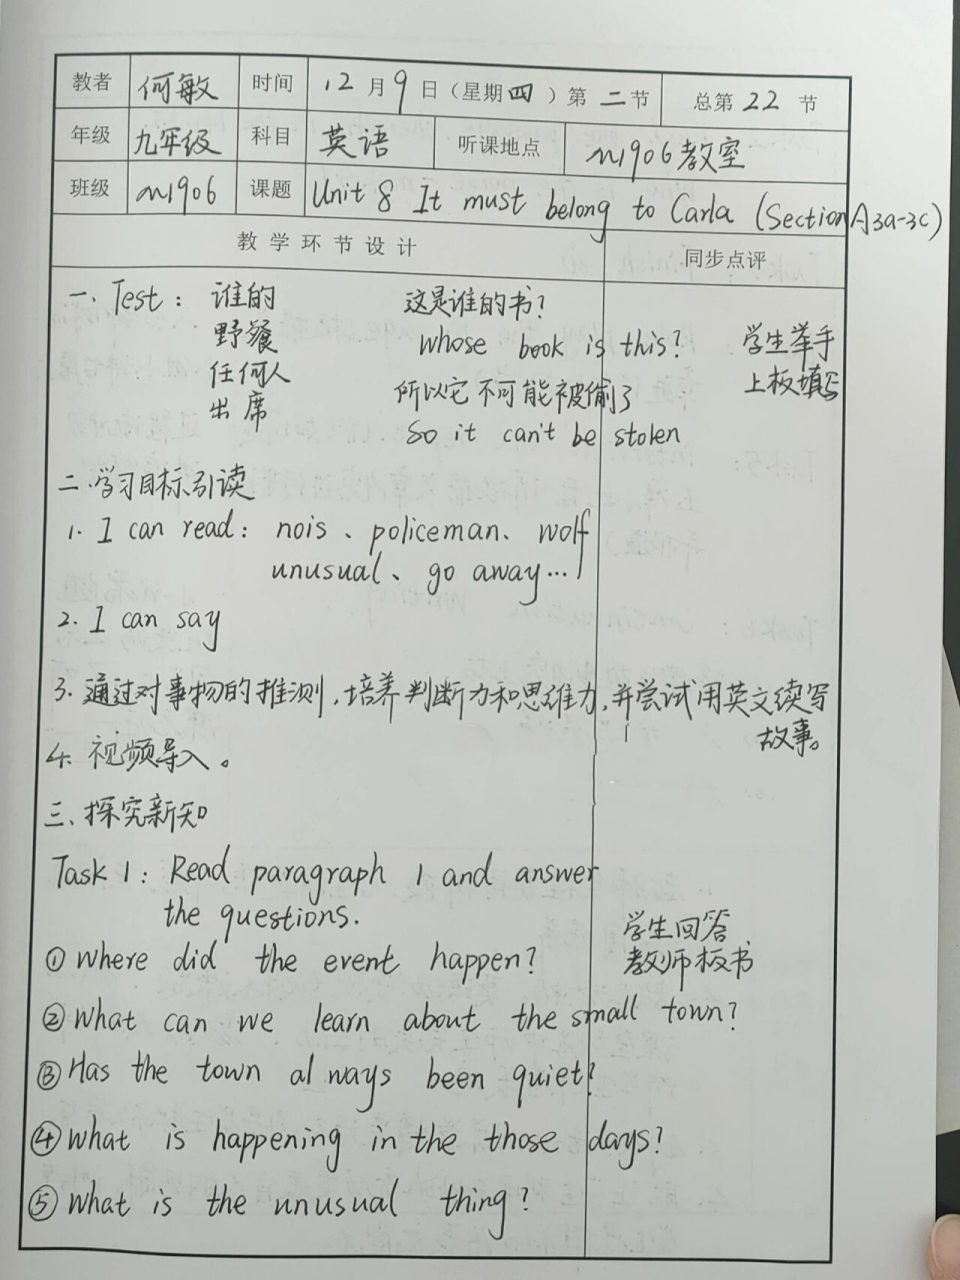 教者 何敏 时间 12月9日（星期四）第二节 总第22节
年级 九年级 科目 英语 听课地点 m1906教室
班级 m1906 课题 Unit 8 It must belong to Carla (Section A 3a-3c)
教学环节设计 同步点评
一. Test: 谁的 这是谁的书?
野餐 whose book is this? 学生举手
任何人 所以它不可能被偷了 上板填写
出席 So it can't be stolen
二.学习目标引读
1. I can read: nois、policeman、wolf
unusual、go away...
2. I can say
3. 通过对事物的推测,培养判断力和思维力,并尝试用英文续写
故事。
4. 视频导入。
三、探究新知
Task 1: Read paragraph 1 and answer
the questions.
学生回答
① Where did the event happen? 教师板书
② What can we learn about the small town?
③ Has the town always been quiet?
④ What is happening in the those days?
⑤ What is the unusual thing?